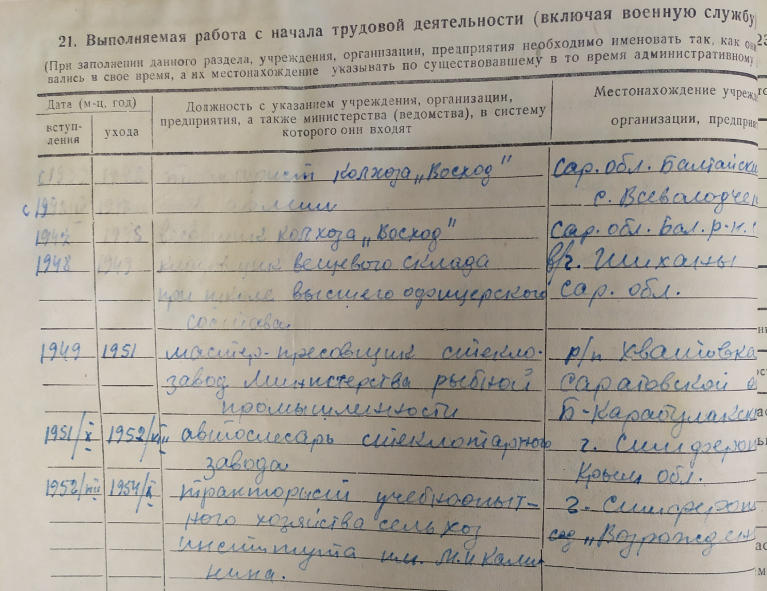 21. Выполняемая работа с начала трудовой деятельности (включая военную службу
(При заполнении данного раздела, учреждения, организации, предприятия необходимо именовать так, как они
вались в свое время, а их местонахождение указывать по существовавшему в то время административному
Дата (м-ц, год)
вступ-
ления
ухода
Должность с указанием учреждения, организации,
предприятия, а также министерства (ведомства), в систему
которого они входят
Местонахождение учреж
организации, предприя
колхоза „Восход" Сар. обл. Балтайски
с с. Всеволодчен
колхоза „Восход" Сар. обл. Бал. р-н.
1948 вещевого склада в/ч. Шиханы
при школе высшего офицерского Сар. обл.
состава.
1949 1951 мастер-пресовщик стекло- р/п Хватовка
завод Министерства рыбной Саратовской о
промышленности Б-Карабулакск
1951/X 1952/VIII автослесарь стеклотарного г. Симферон
завода Крым обл.
1952/VIII 1954/X тракторист учебноопыт- г. Симфероп
ного хозяйства сельхоз сад „Возрожден
института им. М.И Кали
нина.